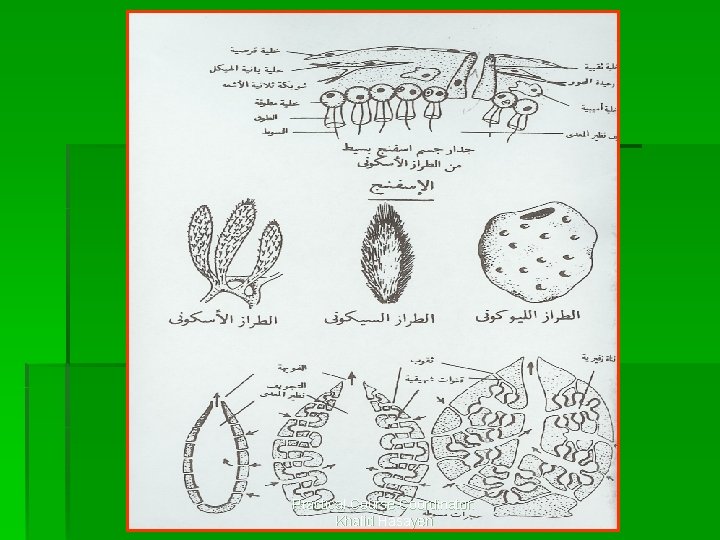 خلية قرصية
خلية بانية الهيكل
شويكة ثلاثية الأشعة
خلية مطوقة
الطوق
السوط
خلية ثقبية
وحيدة المحور
خلية أميبية
نظير المعدى
جدار جسم اسفنج بسيط
من الطراز الأسكونى
الإسفنج
الطراز الأسكونى
الطراز السيكونى
الطراز الليوكونى
الفويهة
التجويف
نظير المعدى
ثقوب
قنوات شهيقية
قناة زفيرية
Practical Course Coordinator:
Khalid Hasayen